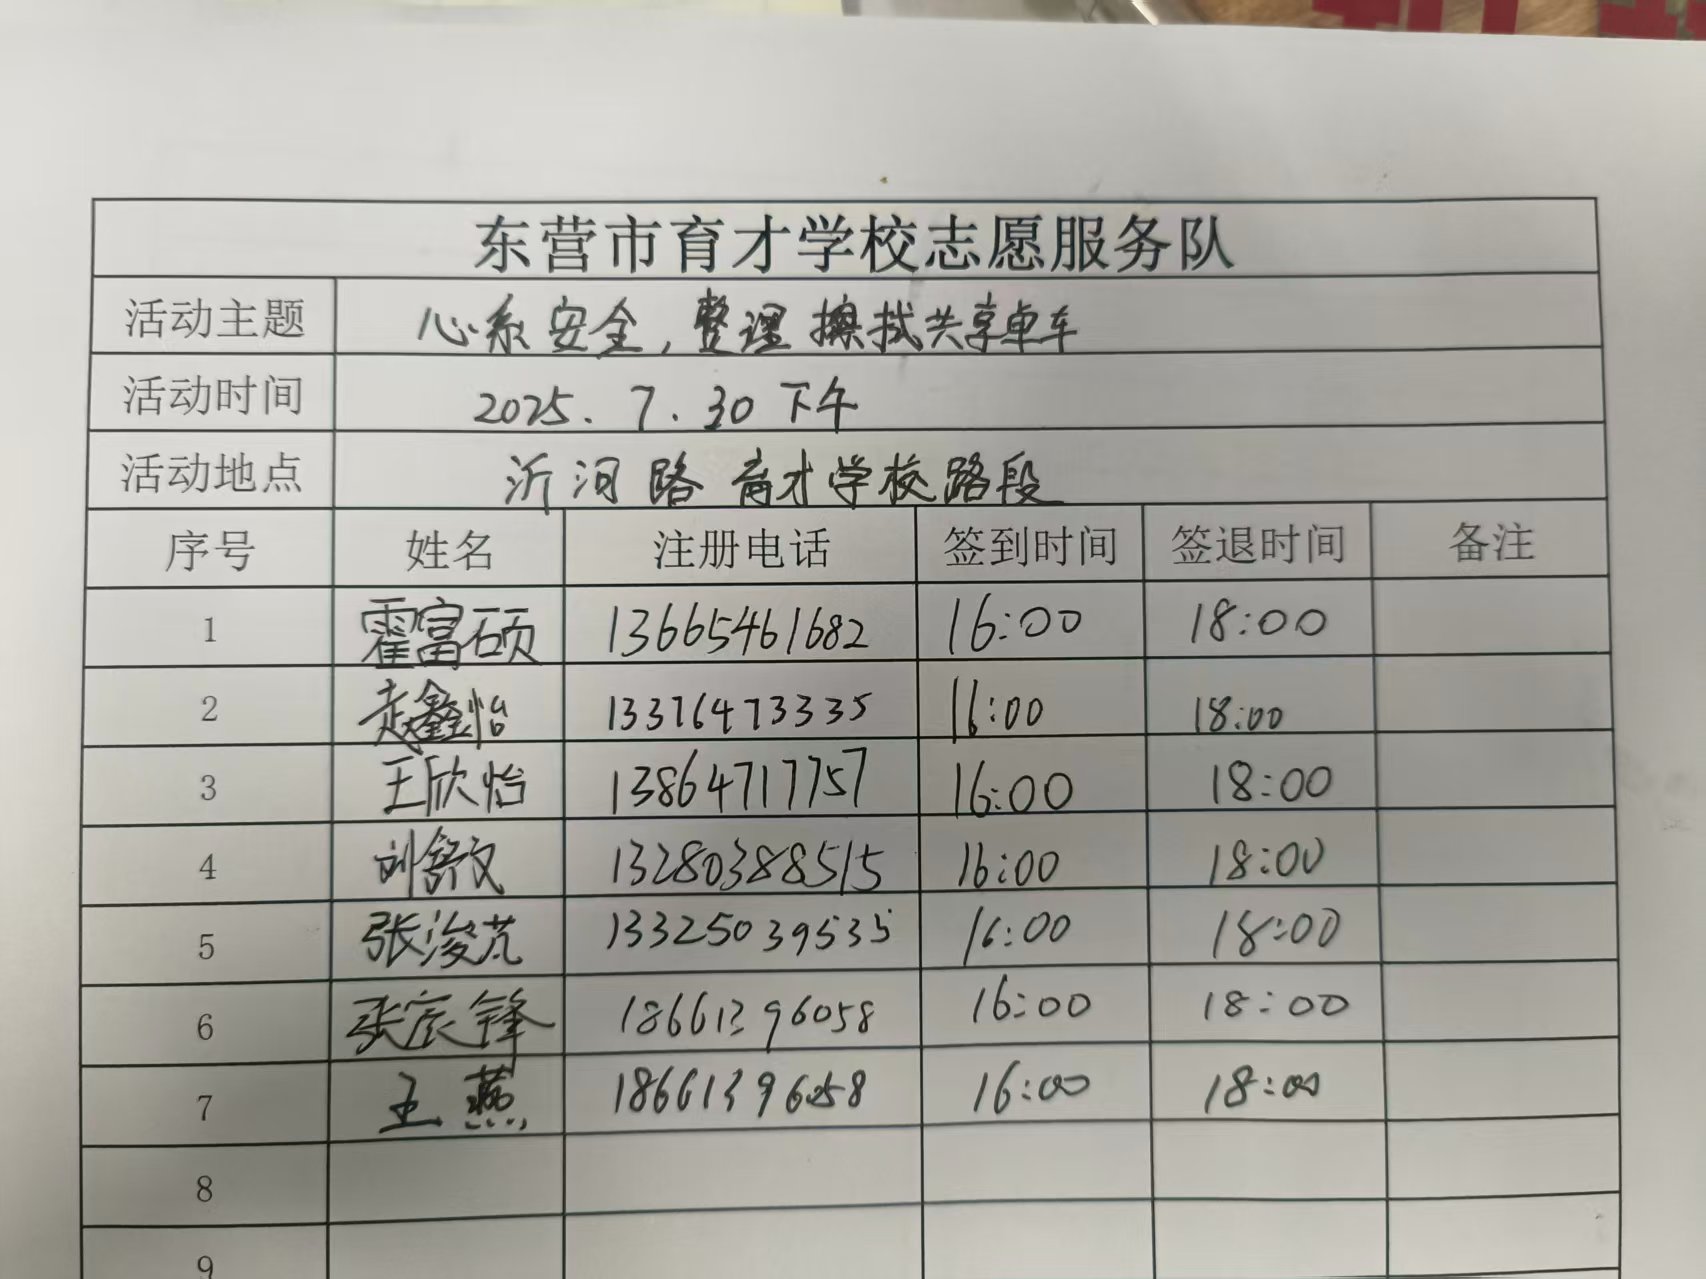 东营市育才学校志愿服务队
活动主题 心系安全,整理擦拭共享单车
活动时间 2025.7.30下午
活动地点 沂河路育才学校路段
序号 姓名 注册电话 签到时间 签退时间 备注
1 霍富硕 13665461682 16:00 18:00
2 赵鑫怡 13376473335 16:00 18:00
3 王欣怡 13864717757 16:00 18:00
4 刘舒文 13280388515 16:00 18:00
5 张浚芃 13325039535 16:00 18:00
6 张宸锋 18661396058 16:00 18:00
7 王燕 18661396058 16:00 18:00
8
9